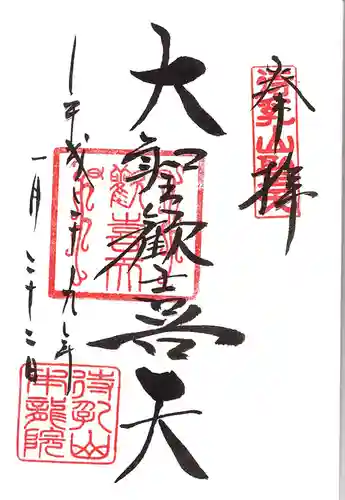 奉拝
大聖歓喜天
平成二十九年
一月二十二日
待乳山
本龍院